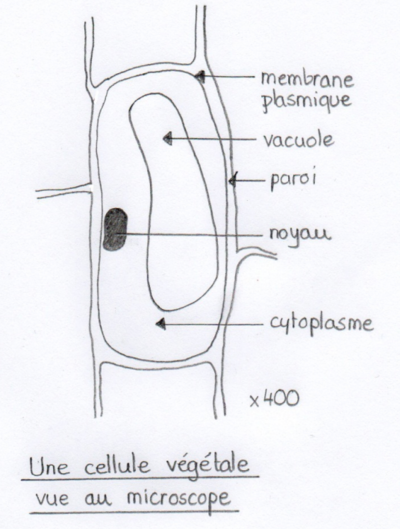 membrane
plasmique
vacuole
paroi
noyau
cytoplasme
x400
Une cellule végétale
vue au microscope